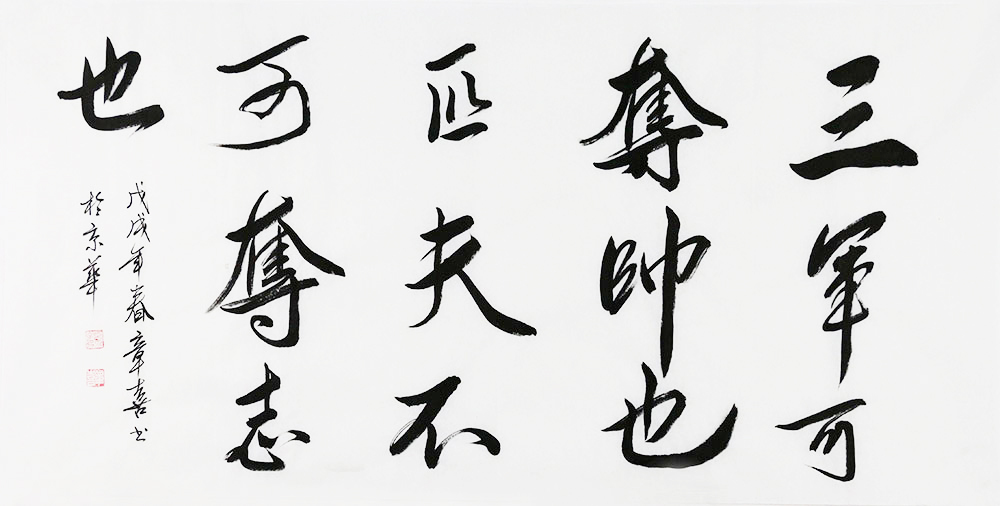 三軍可
奪帥也
匹夫不
可奪志
也
戊戌年春章喜书
於京華